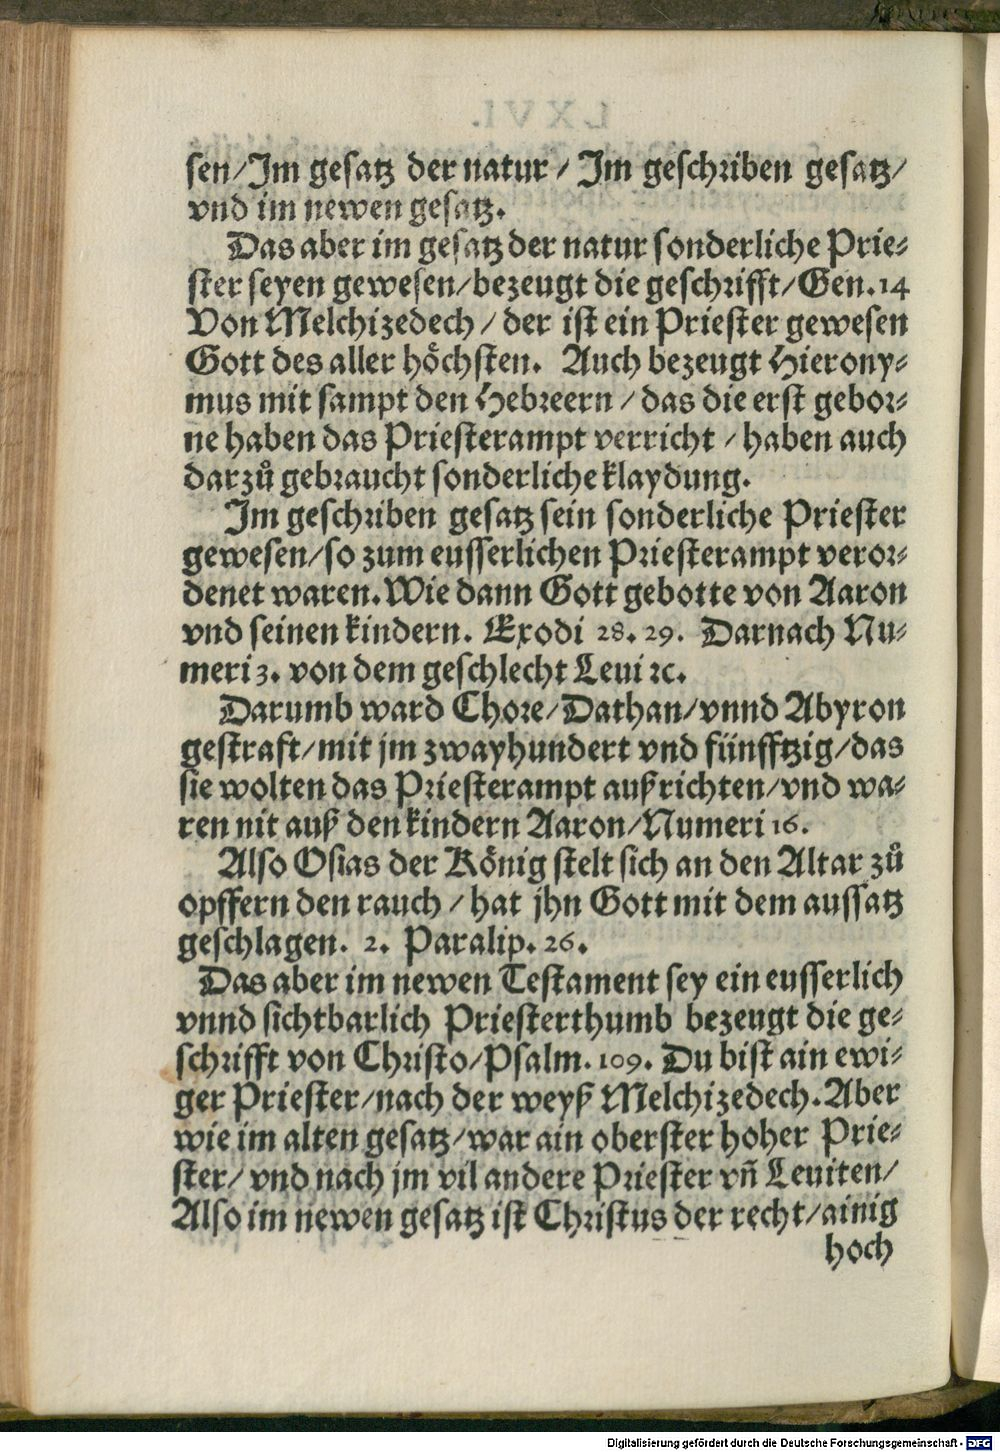 sen/Im gesatz der natur/ Im geschriben gesatz/
vnd im newen gesatz.
Das aber im gesatz der natur sonderliche Prie-
ster seyen gewesen/bezeugt die geschrifft/Gen.14
Von Melchizedech/ der ist ein Priester gewesen
Gott des aller höchsten. Auch bezeugt Hierony-
mus mit sampt den Hebreern/das die erst gebor-
ne haben das Priesterampt verricht/haben auch
darzů gebraucht sonderliche klaydung.
Im geschriben gesatz sein sonderliche Priester
gewesen/so zum eusserlichen Priesterampt veror-
denet waren. Wie dann Gott gebotte von Aaron
vnd seinen kindern. Exodi 28. 29. Darnach Nu-
meri 3. von dem geschlecht Leui ꝛc.
Darumb ward Chore/Dathan/vnnd Abyron
gestraft/mit jm zwayhundert vnd fünfftzig/das
sie wolten das Priesterampt außrichten/vnd wa-
ren nit auß den kindern Aaron/Numeri 16.
Also Osias der König stelt sich an den Altar zů
opffern den rauch/ hat jhn Gott mit dem aussatz
geschlagen. 2. Paralip. 26.
Das aber im newen Testament sey ein eusserlich
vnnd sichtbarlich Priesterthumb bezeugt die ge-
schrifft von Christo/Psalm. 109. Du bist ain ewi-
ger Priester/nach der weyß Melchizedech. Aber
wie im alten gesatz/war ain oberster hoher Prie-
ster/ vnd nach jm vil andere Priester vñ Leuiten/
Also im newen gesatz ist Christus der recht/ainig
hoch
Digitalisierung gefördert durch die Deutsche Forschungsgemeinschaft - DFG